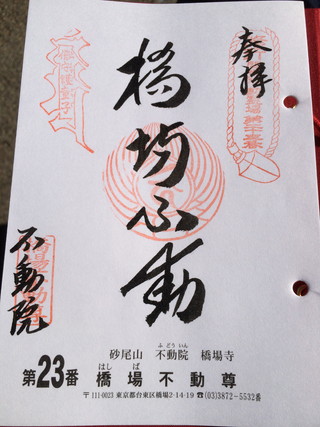 奉拝
橋場不動
不動院
砂尾山 不動院 橋場寺
ふどういん
第23番 橋場不動尊
はしば
〒111-0023 東京都台東区橋場2-14-19 ☎(03)3872-5532番